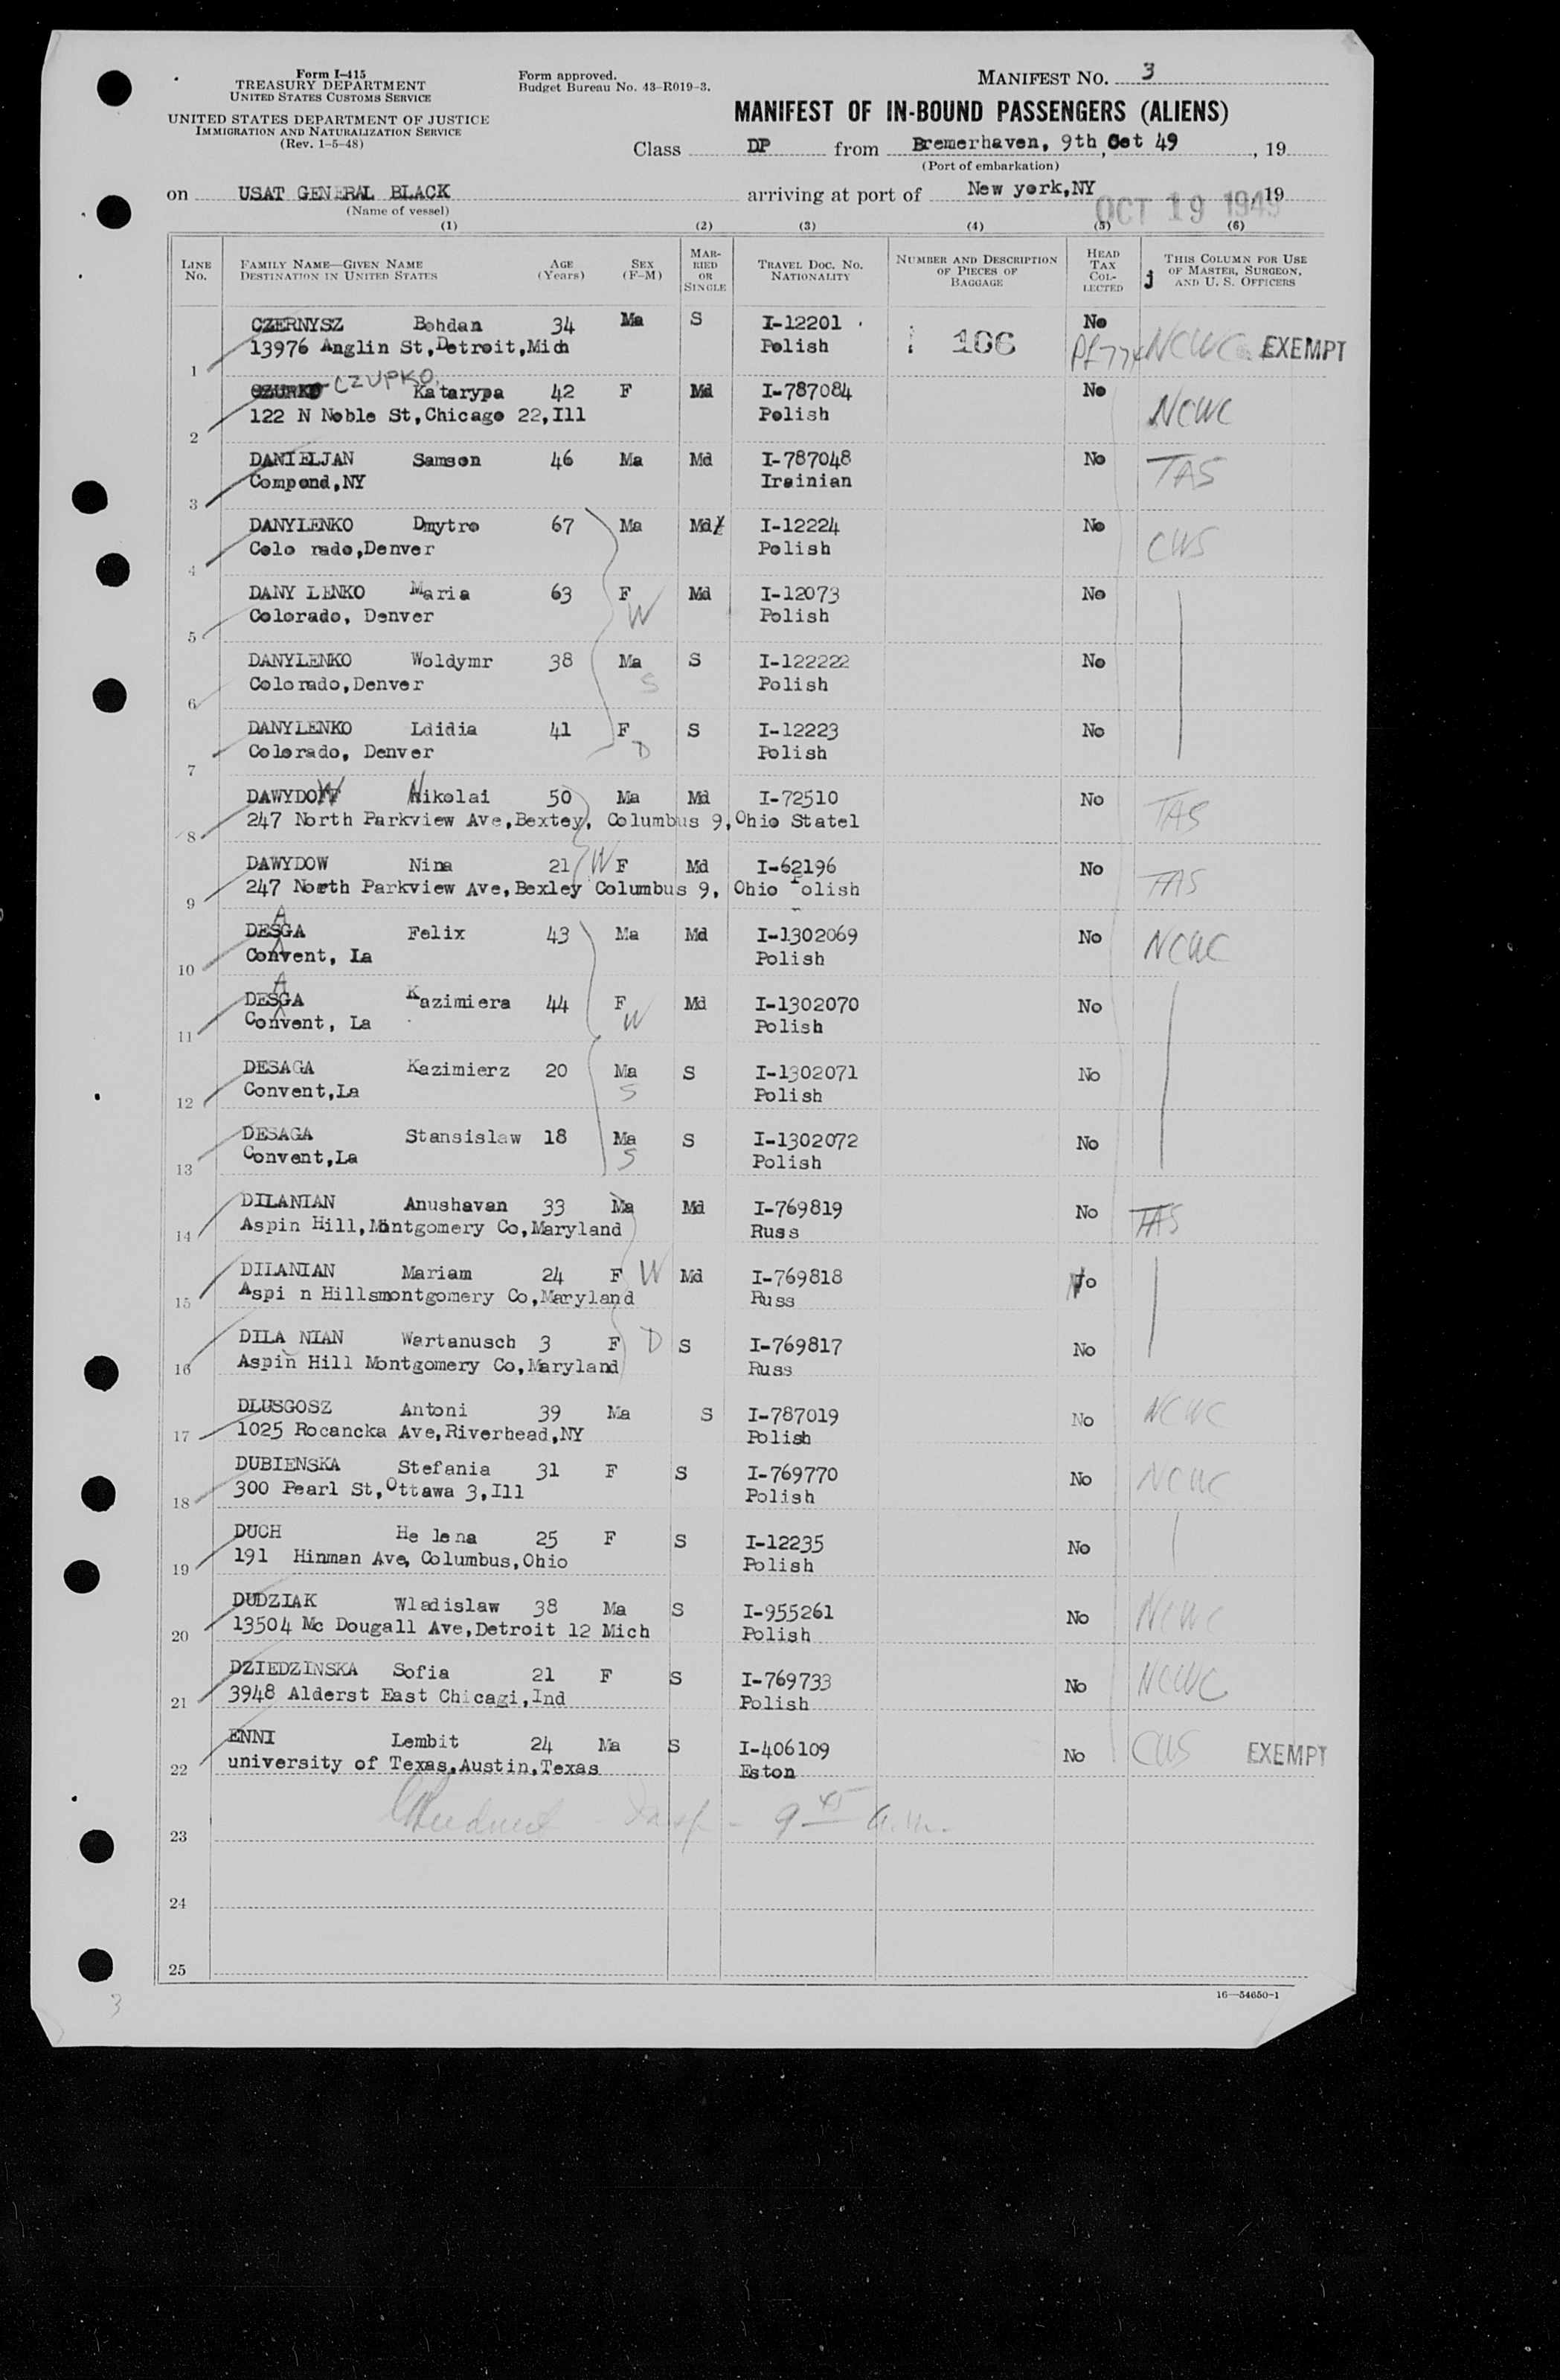 Form I-415
TREASURY DEPARTMENT
UNITED STATES CUSTOMS SERVICE
UNITED STATES DEPARTMENT OF JUSTICE
IMMIGRATION AND NATURALIZATION SERVICE
(Rev. 1-5-48)
Form approved.
Budget Bureau No. 43-R019-3.
MANIFEST NO. 3
MANIFEST OF IN-BOUND PASSENGERS (ALIENS)
Class DP from Bremerhaven, 9th, Oct 49, 19
(Port of embarkation)
on USAT GENERAL BLACK arriving at port of New york,NY 19
(Name of vessel)
OCT 19 1949
(1) (2) (3) (4) (5) (6)
LINE No. FAMILY NAME—GIVEN NAME DESTINATION IN UNITED STATES AGE (Years) SEX (F-M) MARRIED OR SINGLE TRAVEL DOC. NO. NATIONALITY NUMBER AND DESCRIPTION OF PIECES OF BAGGAGE HEAD TAX COLLECTED THIS COLUMN FOR USE OF MASTER, SURGEON, AND U. S. OFFICERS
CZERNYSZ Bohdan 34 Ma S I-12201 No
1 13976 Anglin St,Detroit,Mich Polish 106 NCWC EXEMPT
CZUPKO Katarypa 42 F Md I-787084 No
2 122 N Noble St,Chicago 22,Ill Polish NCWC
DANIELJAN Samson 46 Ma Md I-787048 No TAS
3 Compond,NY Irainian
DANYLENKO Dmytro 67 Ma Md I-12224 No CWS
4 Colo rado,Denver Polish
DANY LENKO Maria 63 F Md I-12073 No
5 Colorado, Denver W Polish
DANYLENKO Woldymr 38 Ma S I-122222 No
6 Colorado,Denver S Polish
DANYLENKO Ldidia 41 F S I-12223 No
7 Colorado, Denver D Polish
DAWYDOW Nikolai 50 Ma Md I-72510 No TAS
8 247 North Parkview Ave,Bextey, Columbus 9,Ohio Statel
DAWYDOW Nina 21 W F Md I-62196 No TAS
9 247 North Parkview Ave,Bexley Columbus 9, Ohio Polish
DESAGA Felix 43 Ma Md I-1302069 No NCWC
10 Convent, La Polish
DESAGA Kazimiera 44 F Md I-1302070 No
11 Convent, La W Polish
DESAGA Kazimierz 20 Ma S I-1302071 No
12 Convent,La S Polish
DESAGA Stansislaw 18 Ma S I-1302072 No
13 Convent,La S Polish
DILANIAN Anushavan 33 Ma Md I-769819 No TAS
14 Aspin Hill,Montgomery Co,Maryland Russ
DILANIAN Mariam 24 F W Md I-769818 No
15 Aspi n Hillsmontgomery Co,Maryland Russ
DILA NIAN Wartanusch 3 F D S I-769817 No
16 Aspin Hill Montgomery Co,Maryland Russ
DLUSGOSZ Antoni 39 Ma S I-787019 No NCWC
17 1025 Rocancka Ave,Riverhead,NY Polish
DUBIENSKA Stefania 31 F S I-769770 No NCWC
18 300 Pearl St,Ottawa 3,Ill Polish
DUCH He lena 25 F S I-12235 No
19 191 Hinman Ave, Columbus,Ohio Polish
DUDZIAK Wladislaw 38 Ma S I-955261 No NCWC
20 13504 Mc Dougall Ave,Detroit 12 Mich Polish
DZIEDZINSKA Sofia 21 F S I-769733 No NCWC
21 3948 Alderst East Chicagi,Ind Polish
ENNI Lembit 24 Ma S I-406109 No CWS EXEMPT
22 university of Texas,Austin,Texas Eston
23 9 45 a.m.
24
25
16—54650-1
3